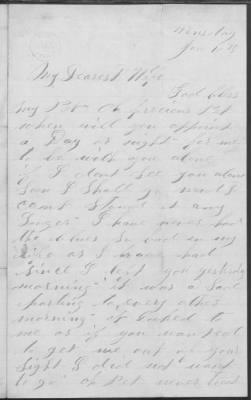 Thursday
Jan
My Dearest Wife
God bless
my Pet Oh precious Pet
when will you appoint
a Day or night for me
to be with you alone
if I dont see you alone
soon I shall go
cant stand it any
longer I have never had
the blues so bad in my
life as I have had
since I left you yesterday
morning it was a sad
parting to every other
morning it looked to
me as if you wanted
to get me out of your
sight I did not want
to go Oh Pet never treat